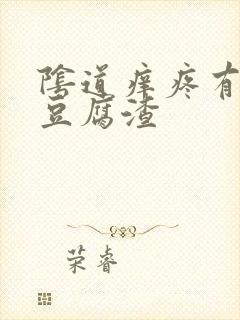 陰道痒疼有
豆腐渣
荣睿